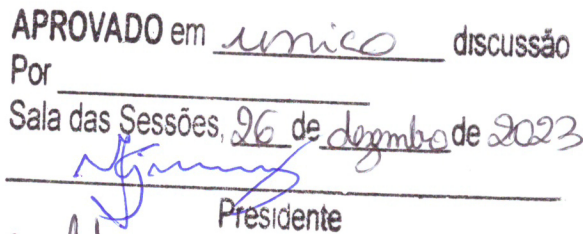 APROVADO em unico discussão
Por
Sala das Sessões, 26 de dezembro de 2023
Presidente